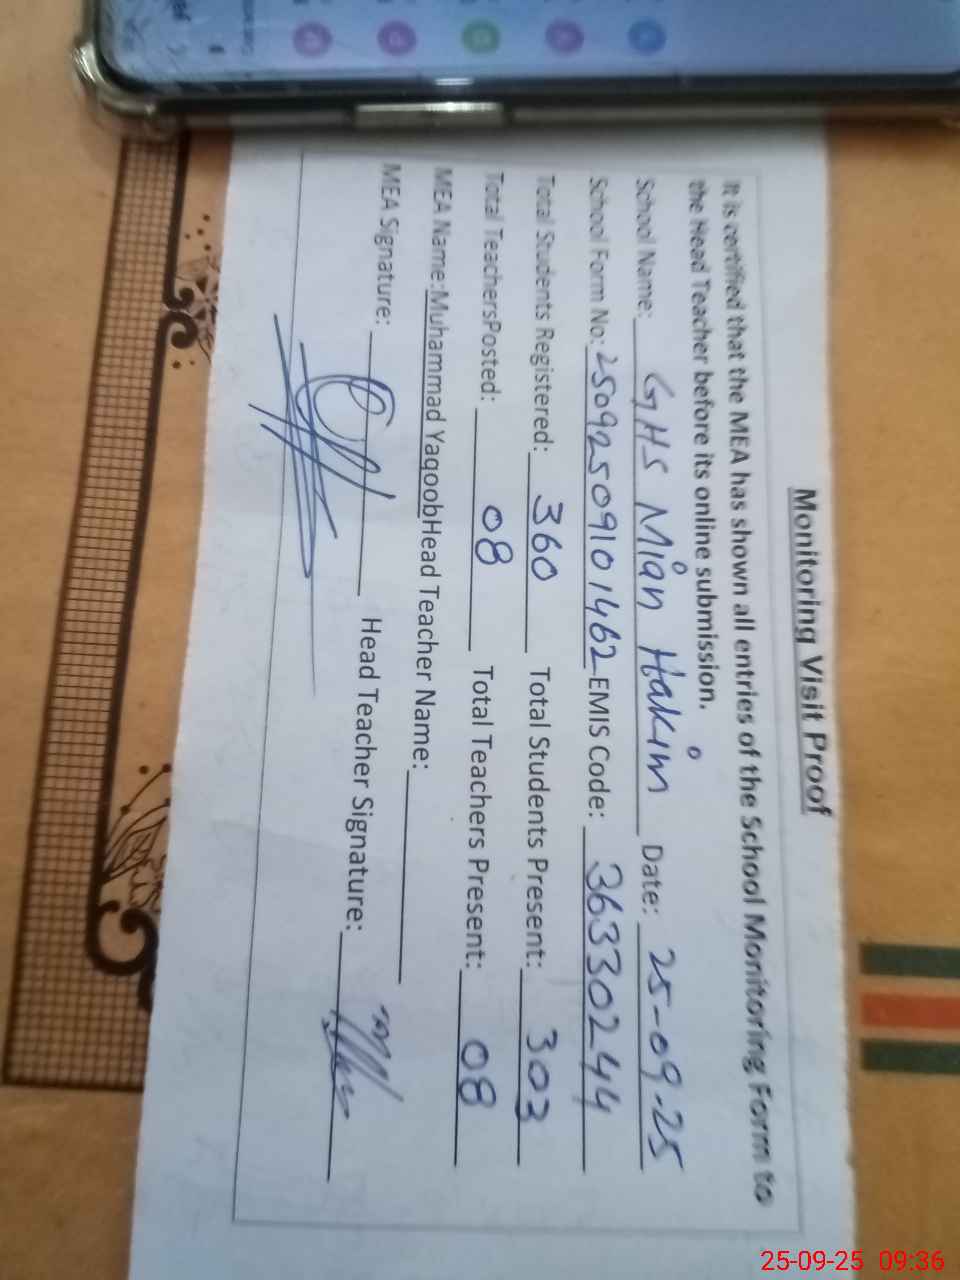 Monitoring Visit Proof
It is certified that the MEA has shown all entries of the School Monitoring Form to
the Head Teacher before its online submission.
School Name: GHS Mian Hakim Date: 25-09-25
School Form No: 25092509101462 EMIS Code: 36330244
Total Students Registered: 360 Total Students Present: 303
Total TeachersPosted: 08 Total Teachers Present: 08
MEA Name:Muhammad YaqoobHead Teacher Name:
MEA Signature: Head Teacher Signature:
25-09-25 09:36